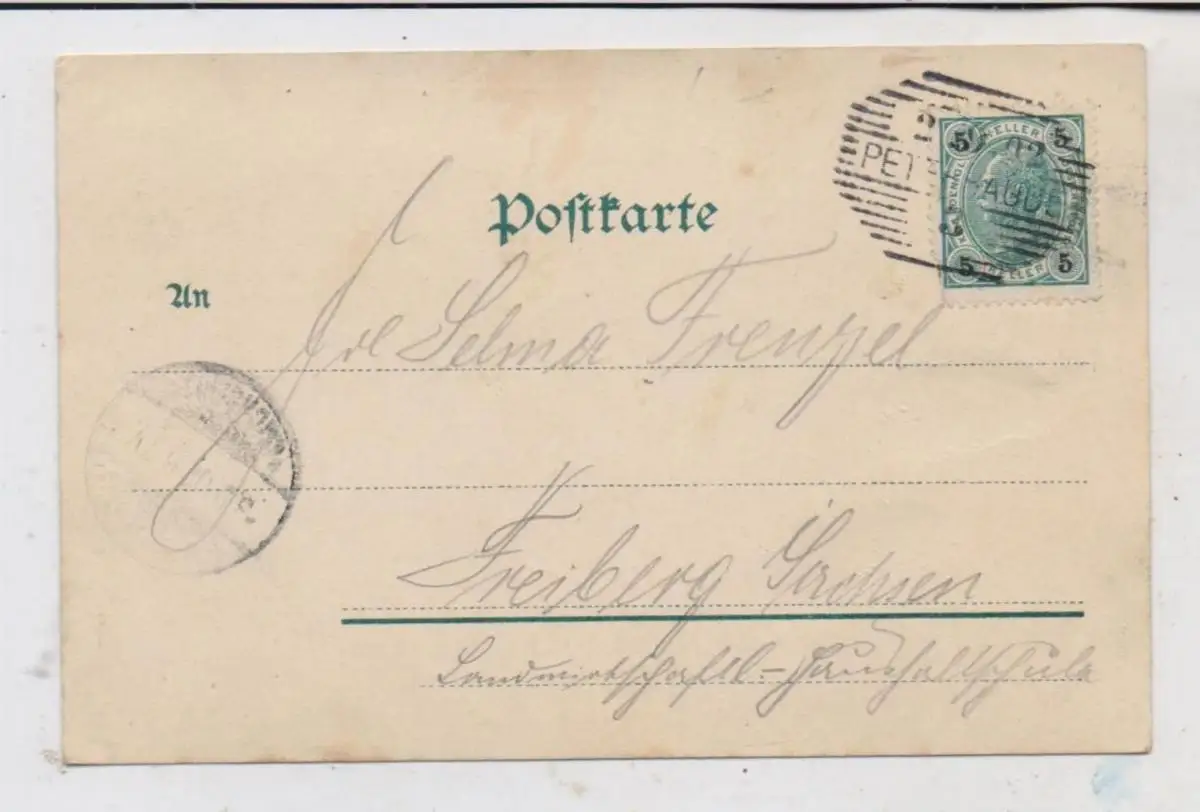 Postkarte
5 HELLER 5
PET 02
AUDE
5 HELLER 5
An
Frl Selma Frenzel
Freiberg Sachsen
Landwirtschaftl-Haushaltschule